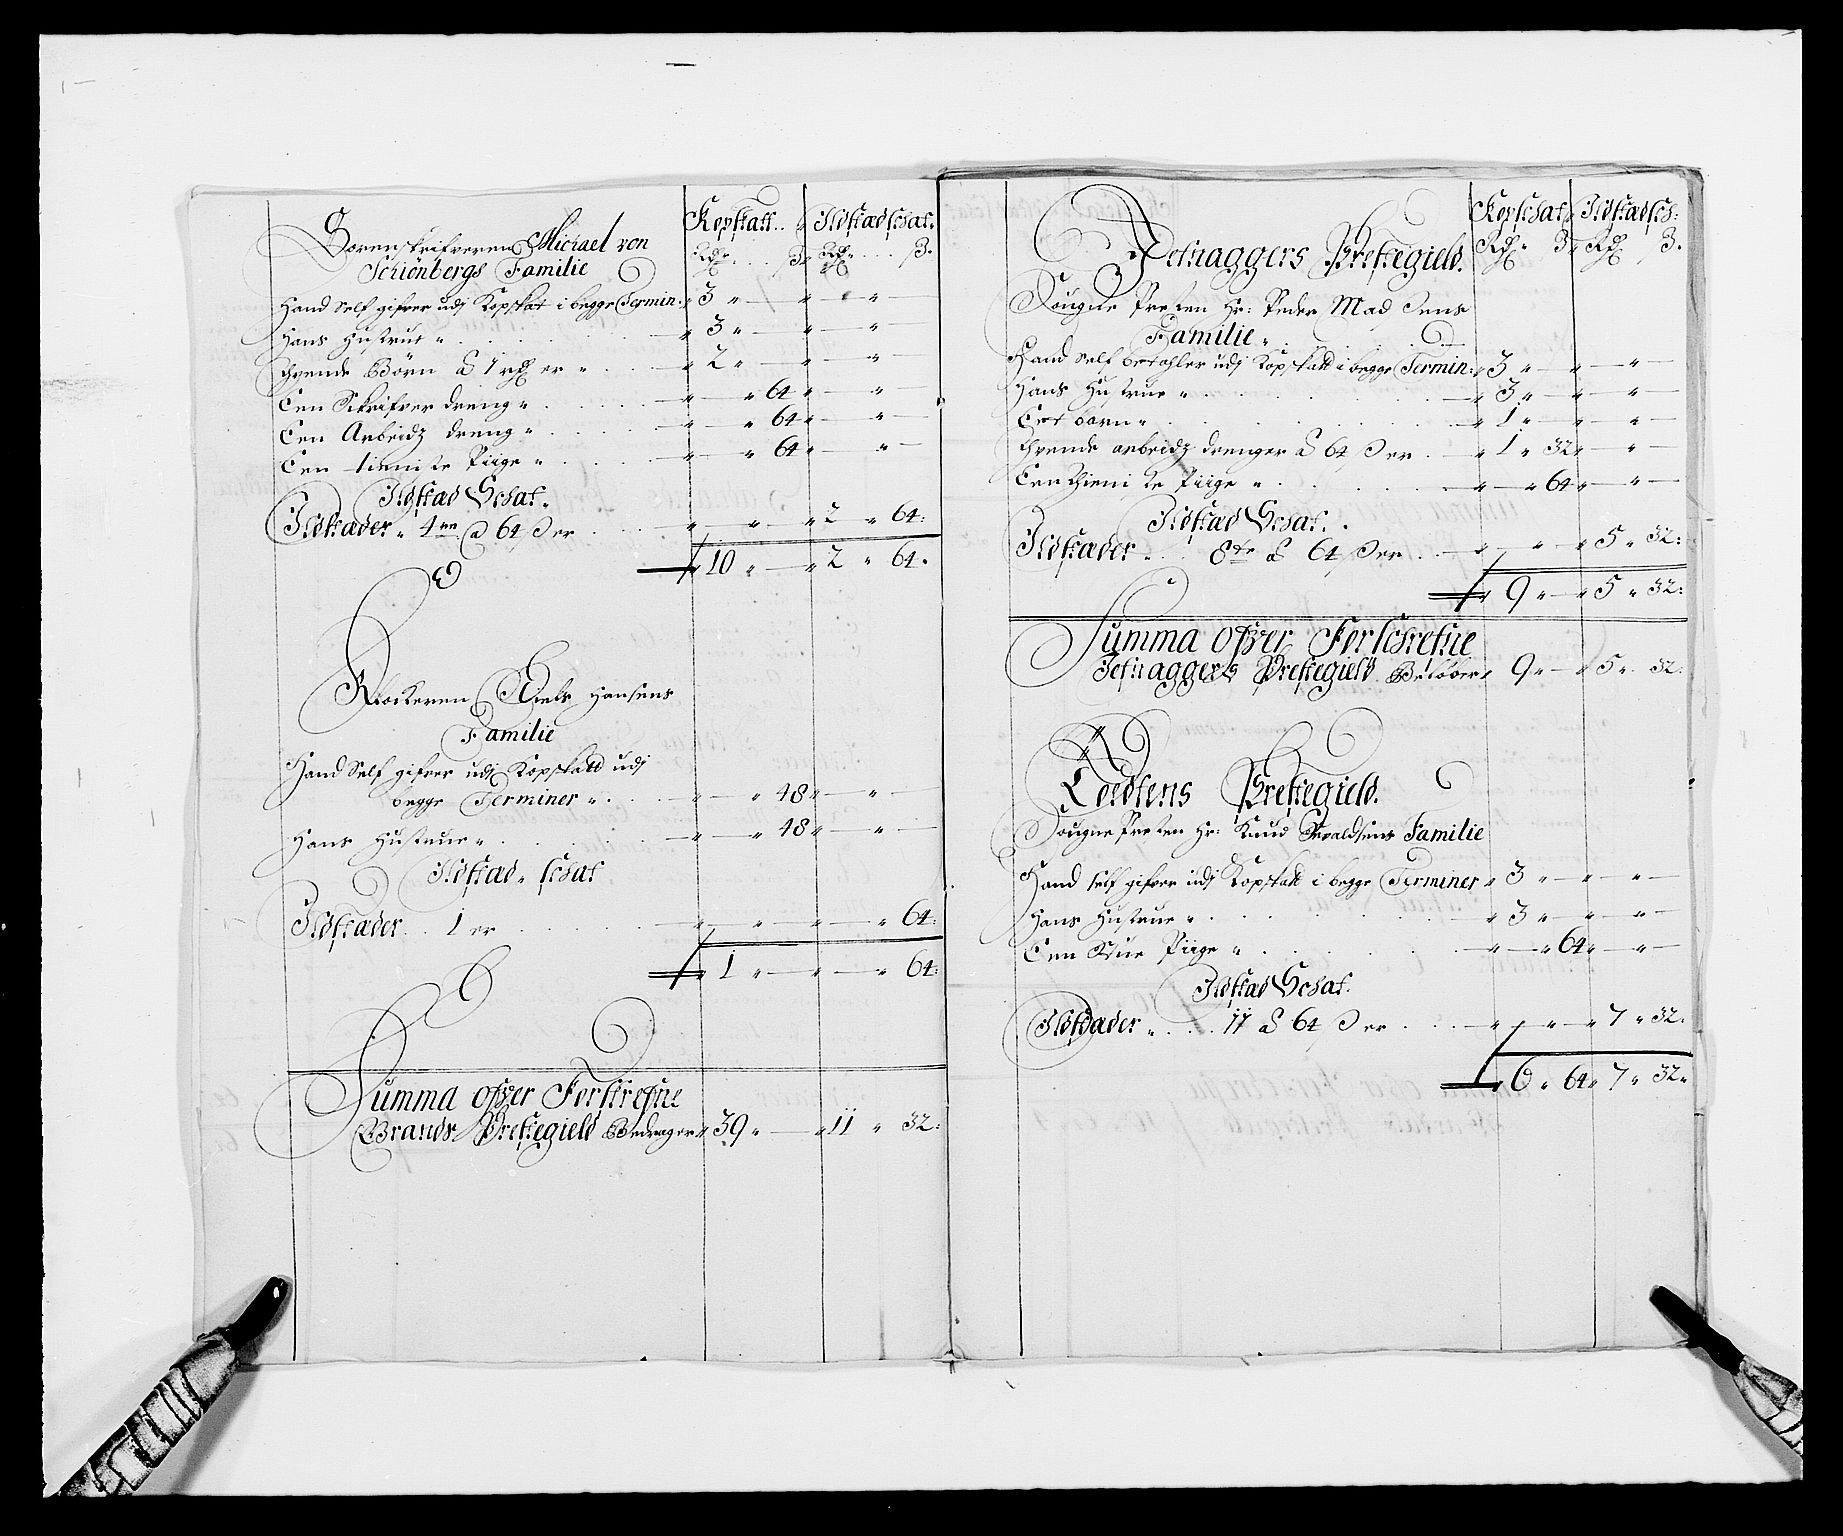 Kopskatt. Ildstædschat.
Rdr ß Rdr ß
Sorenskrifveren Michael von
Schiönbergs Familie
Hand Self gifver udj Kopskat i begge Termin: 3 " — " — " —
Hans Hustrue " 3 " — " — " —
Thvende Börn à 1 rdr er " 2 " — " — " —
Een Skrifver dreng " — " 64 " — " —
Een Arbeidz dreng " — " 64 " — " —
Een tienniste Piige " — " 64 " — " —
Ildstæd Schat.
Ildstæder " 4re à 64 ß er " " " 2 " 64:
10 " — " 2 " 64.
Klockeren Niels Hansens
Familie
Hand Self gifver udj Kopskatt udj
begge Terminer " — " 48 " — " —
Hans Hustrue " — " 48 " — " —
Ildstæd " schat
Ildstæder 1 er — " — " — " 64:
1 " — " — " 64:
Summa ofver Forskrefne
Brands Prestegield Bedrager " 39 " — " 11 " 32:
Kopschat Ildstædsch:
Rdr ß Rdr ß
Jefnaggers Prestegield.
Sougne Presten Hr: Peder Madsens
Familie "
Hand self betahler udj Kopskatt i begge Termin: 3 " — " — " —
Hans Hustrue " 3 " — " — " —
Eet barn " 1 " — " — " —
Thvende arbeidz drenger à 64 ß er 1 " 32 " — " —
Een thieniste Piige " — " 64 " — " —
Ildstæd Schat.
Ildstæder " 8te à 64 ß er — " — " 5 " 32:
9 " — " 5 " 32:
Summa ofver Forschrefne
Jefnaggers Prestegield Beløber 9 " — " 5 " 32:
Loedtens Prestegield.
Sougne Presten Hr: Knud Sevaldsens Familie
Hand self gifver udj Kopskatt i begge Terminer " 3 " — " — " —
Hans Hustrue " 3 " — " — " —
Een Stue Piige " — " 64 " — " —
Ildstæd Schat.
Ildstæder " 11 à 64 ß er — " — " 7 " 32:
6 " 64 " 7 " 32 "